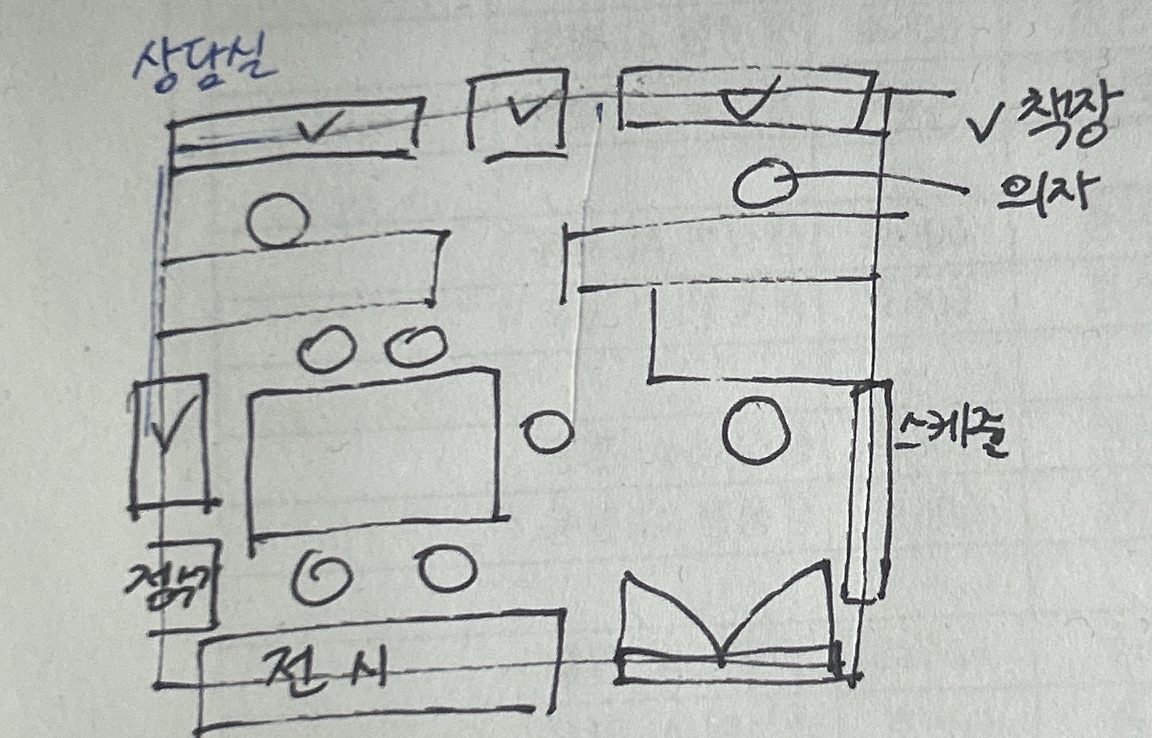 상담실
✓ 책장
의자
스케줄
정수기
전시